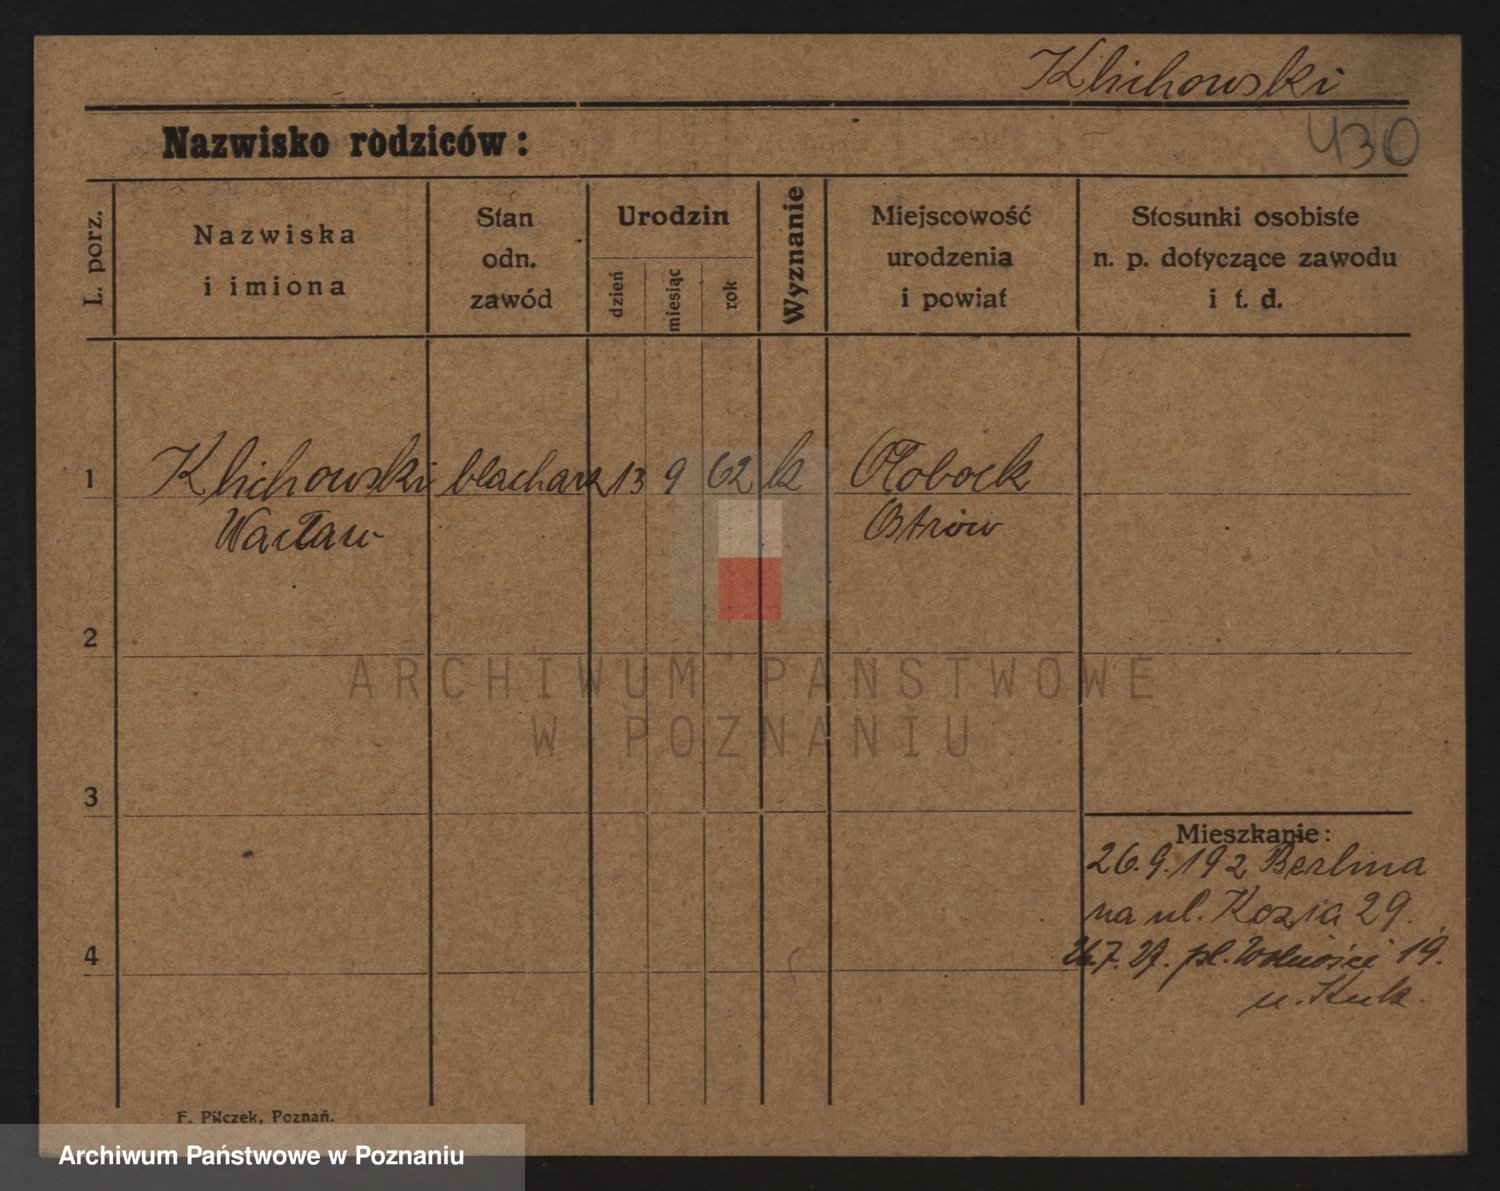 Klichowski
Nazwisko rodziców:
430
L. porz.
Nazwiska
i imiona
Stan
odn.
zawód
Urodzin
dzień
miesiąc
rok
Wyznanie
Miejscowość
urodzenia
i powiat
Stosunki osobiste
n. p. dotyczące zawodu
i t. d.
1 Klichowski blacharz 13 9 62 k Ołobock
Wacław Ostrów
2
ARCHIWUM PAŃSTWOWE
W POZNANIU
3
Mieszkanie:
26.9.192 Berlina
na ul. Kozia 29.
4
26.7.27. pl. Wolności 19.
u. Kuk.
F. Pilczek, Poznań.
Archiwum Państwowe w Poznaniu